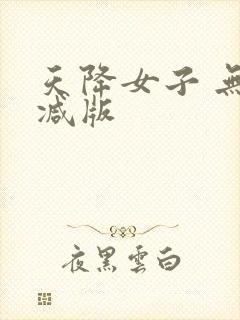 天降女子 無
减版
夜黑雲白